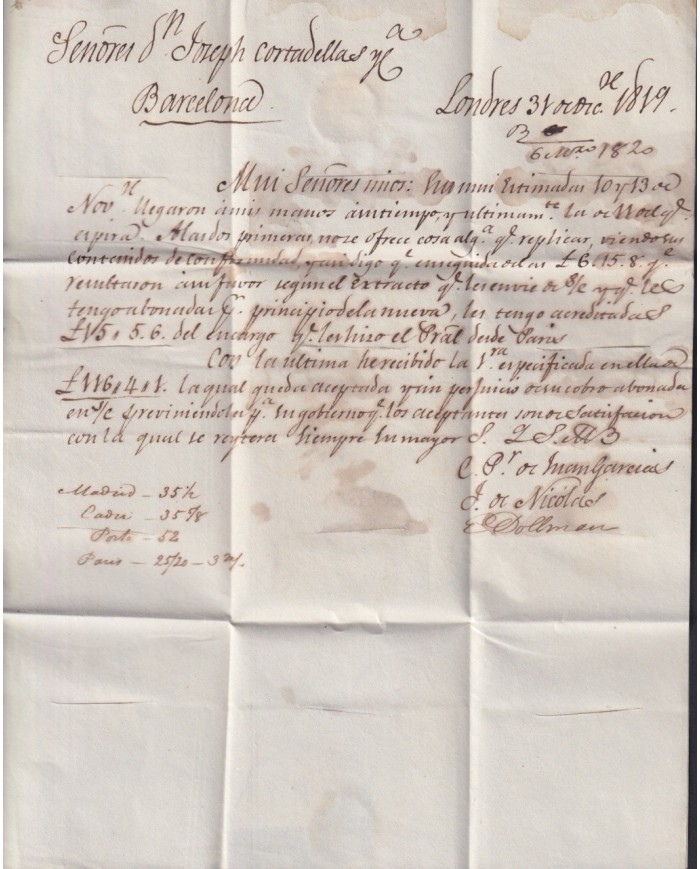 Señores Dn Joseph Cortadellas y Ca
Barcelona
Londres 31 de Dice 1819.
R
6 Mzo 1820
Mui Señores mios: Sus mui Estimadas 10 y 13 de
Nove llegaron à mis manos à un tiempo, y ultimamte la de 11 del qe
espira. A las dos primeras, no se ofrece cosa alga qe replicar, viendo sus
contenidos de conformidad, y asi digo qe en seguida de las £6.15.8. qe
resultaron à su favor segun el Extracto qe les envie de S/C y qe les
tengo abonadas pr principio de la nueva, les tengo acreditadas
£15,5.6. del encargo qe les hizo el Pral desde Paris
Con la ultima he recibido la 1ra especificada en ella de
£116,4,1. la qual queda aceptada y sin perjuicio de su cobro abonada
en S/C previniendoles pa su gobierno qe los aceptantes son de Satisfacion
con la qual se reytera siempre su mayor S. Q S. M B
C. Pr de Juan Garcias
J. de Nicolas
E Dollman
Madrid - 35½
Cadiz - 35⅞
Porto - 52
Paris - 25/20 - 3